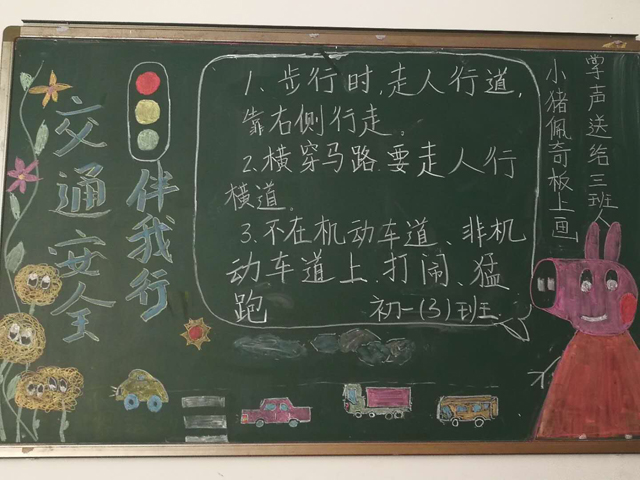 交通安全
伴我行
1.步行时,走人行道,
靠右侧行走。
2.横穿马路.要走人行
横道。
3.不在机动车道、非机
动车道上.打闹、猛
跑
初一(3)班
小猪佩奇板上画
掌声送给三班人